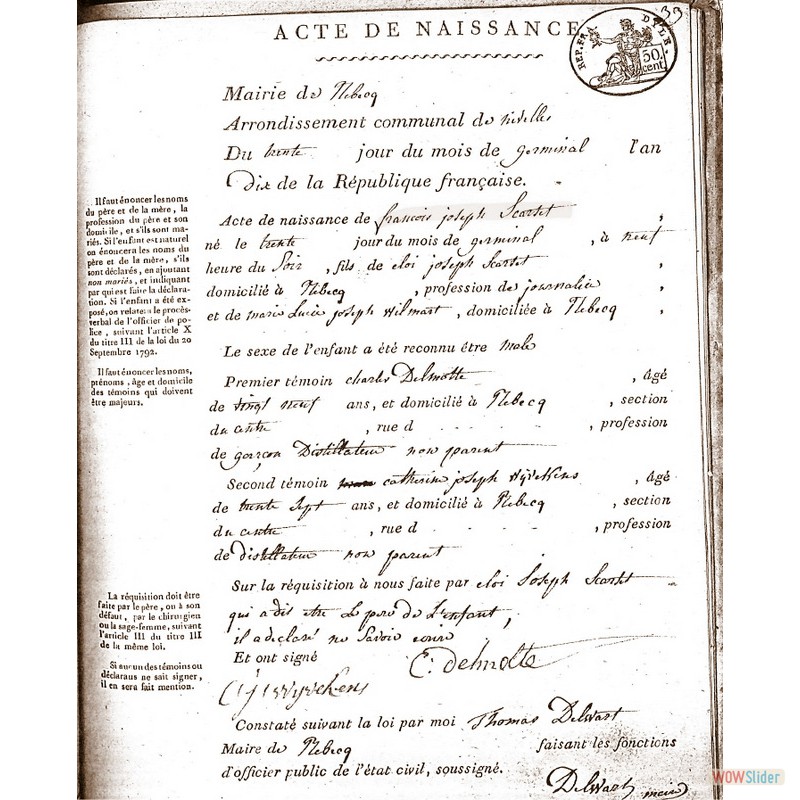 ACTE DE NAISSANCE
33
REP. FRA. DYLE
50. cent.
Mairie de Rebecq
Arrondissement communal de nivelles
Du trente jour du mois de germinal l'an
Dix de la République française.
Acte de naissance de francois joseph Scartet,
né le trente jour du mois de germinal, à neuf
heure du Soir, fils de eloi joseph Scartet,
domicilié à Rebecq, profession de journalié,
et de marie Lucie joseph Wilmart, domiciliée à Rebecq,
Le sexe de l'enfant a été reconnu être male
Premier témoin charles Delmotte, âgé
de vingt neuf ans, et domicilié à Rebecq, section
du centre, rue d - - - - -, profession
de garçon Distillateur non parent
Second témoin catherine joseph Wÿvekens, âgé
de trente Sept ans, et domicilié à Rebecq, section
du centre, rue d - - - - -, profession
de distillateur non parent
Sur la réquisition à nous faite par eloi Joseph Scartet
qui a dit etre Le pere de L'enfant,
il a declaré ne Savoir ecrire
Et ont signé C: delmotte
C j wyvekens
Constaté suivant la loi par moi Thomas Delwart
Maire de Rebecq faisant les fonctions
d'officier public de l'état civil, soussigné.
Delwart maire
Il faut énoncer les noms
du père et de la mère, la
profession du père et son
domicile, et s'ils sont ma-
riés. Si l'enfant est naturel
on énoncera les noms du
père et de la mère, s'ils
sont déclarés, en ajoutant
non mariés, et indiquant
par qui est faite la déclara-
tion. Si l'enfant a été ex-
posé, on relatera le procès-
verbal de l'officier de po-
lice, suivant l'article X
du titre III de la loi du 20
Septembre 1792.
Il faut énoncer les noms,
prénoms, âge et domicile
des témoins qui doivent
être majeurs.
La réquisition doit être
faite par le père, ou à son
défaut, par le chirurgien
ou la sage-femme, suivant
l'article III du titre III
de la même loi.
Si aucun des témoins ou
déclarans ne sait signer,
il en sera fait mention.
WOWSlider